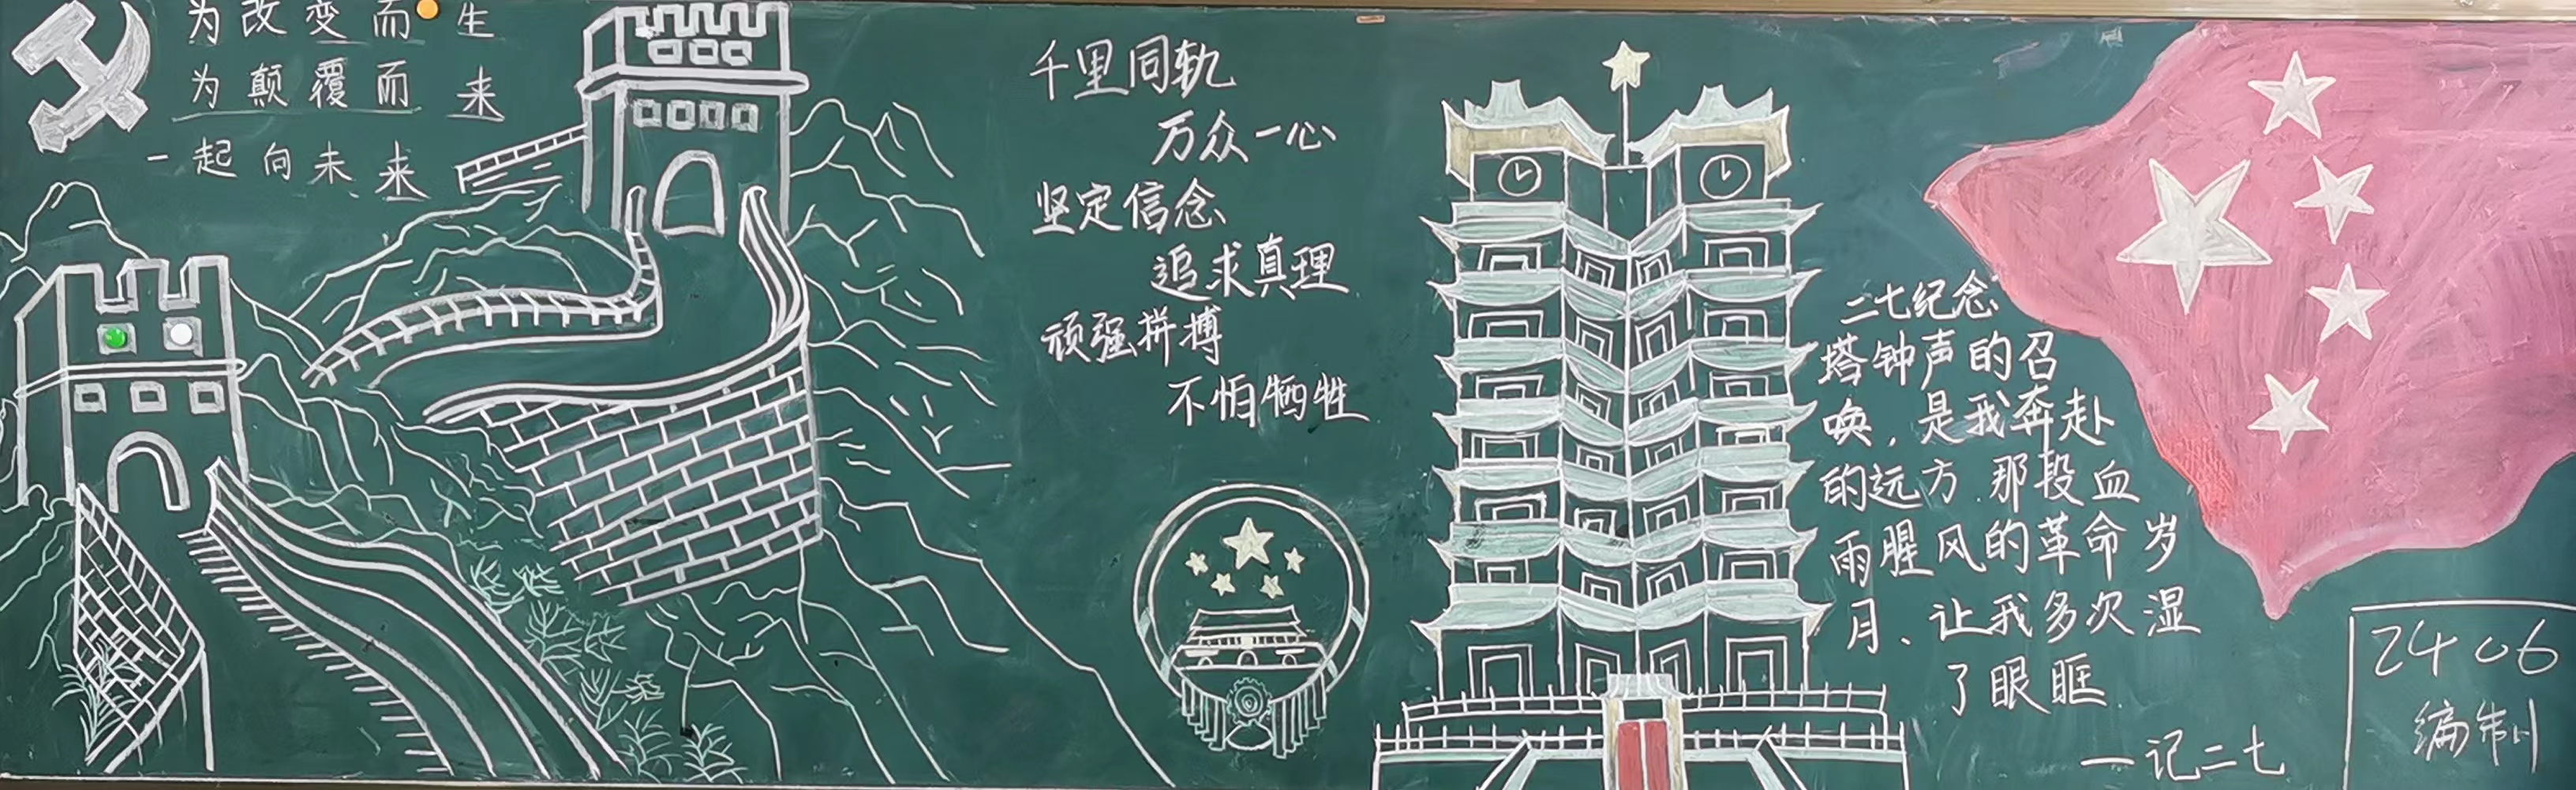 为改变而生
为颠覆而来
一起向未来
千里同轨
万众一心
坚定信念
追求真理
顽强拼搏
不怕牺牲
二七纪念
塔钟声的召
唤，是我奔赴
的远方.那段血
雨腥风的革命岁
月、让我多次湿
了眼眶
—记二七
2406
编制